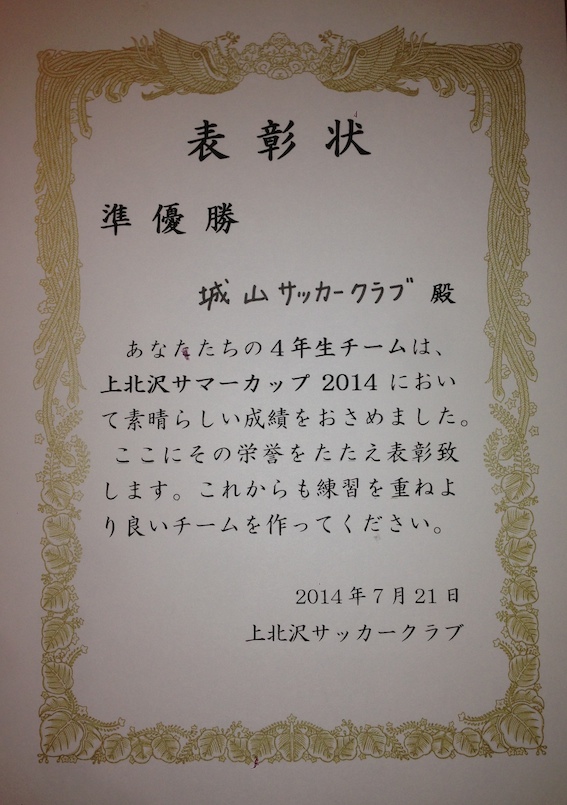 表彰状
準優勝
城山サッカークラブ 殿
あなたたちの4年生チームは、
上北沢サマーカップ 2014 におい
て素晴らしい成績をおさめました。
ここにその栄誉をたたえ表彰致
します。これからも練習を重ねよ
り良いチームを作ってください。
2014年7月21日
上北沢サッカークラブ